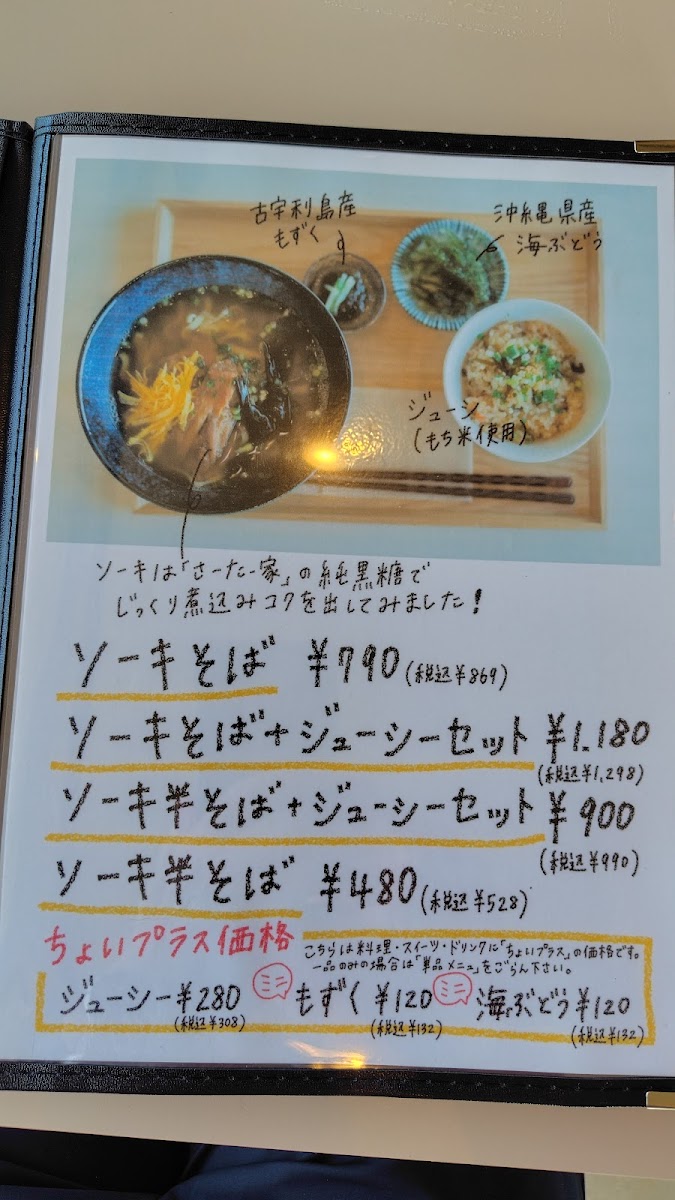 古宇利島産
もずく
沖縄県産
海ぶどう
ジューシー
(もち米使用)
ソーキは「さーたー家」の純黒糖で
じっくり煮込みコクを出してみました!
ソーキそば ¥790(税込¥869)
ソーキそば+ジューシーセット ¥1.180
(税込¥1,298)
ソーキ半そば+ジューシーセット ¥900
(税込¥990)
ソーキ半そば ¥480(税込¥528)
ちょいプラス価格
こちらは料理・スイーツ・ドリンクに「ちょいプラス」の価格です。
一品のみの場合は「単品メニュー」をごらん下さい。
ジューシー¥280 ミニ もずく ¥120 ミニ 海ぶどう ¥120
(税込¥308) (税込¥132) (税込¥132)